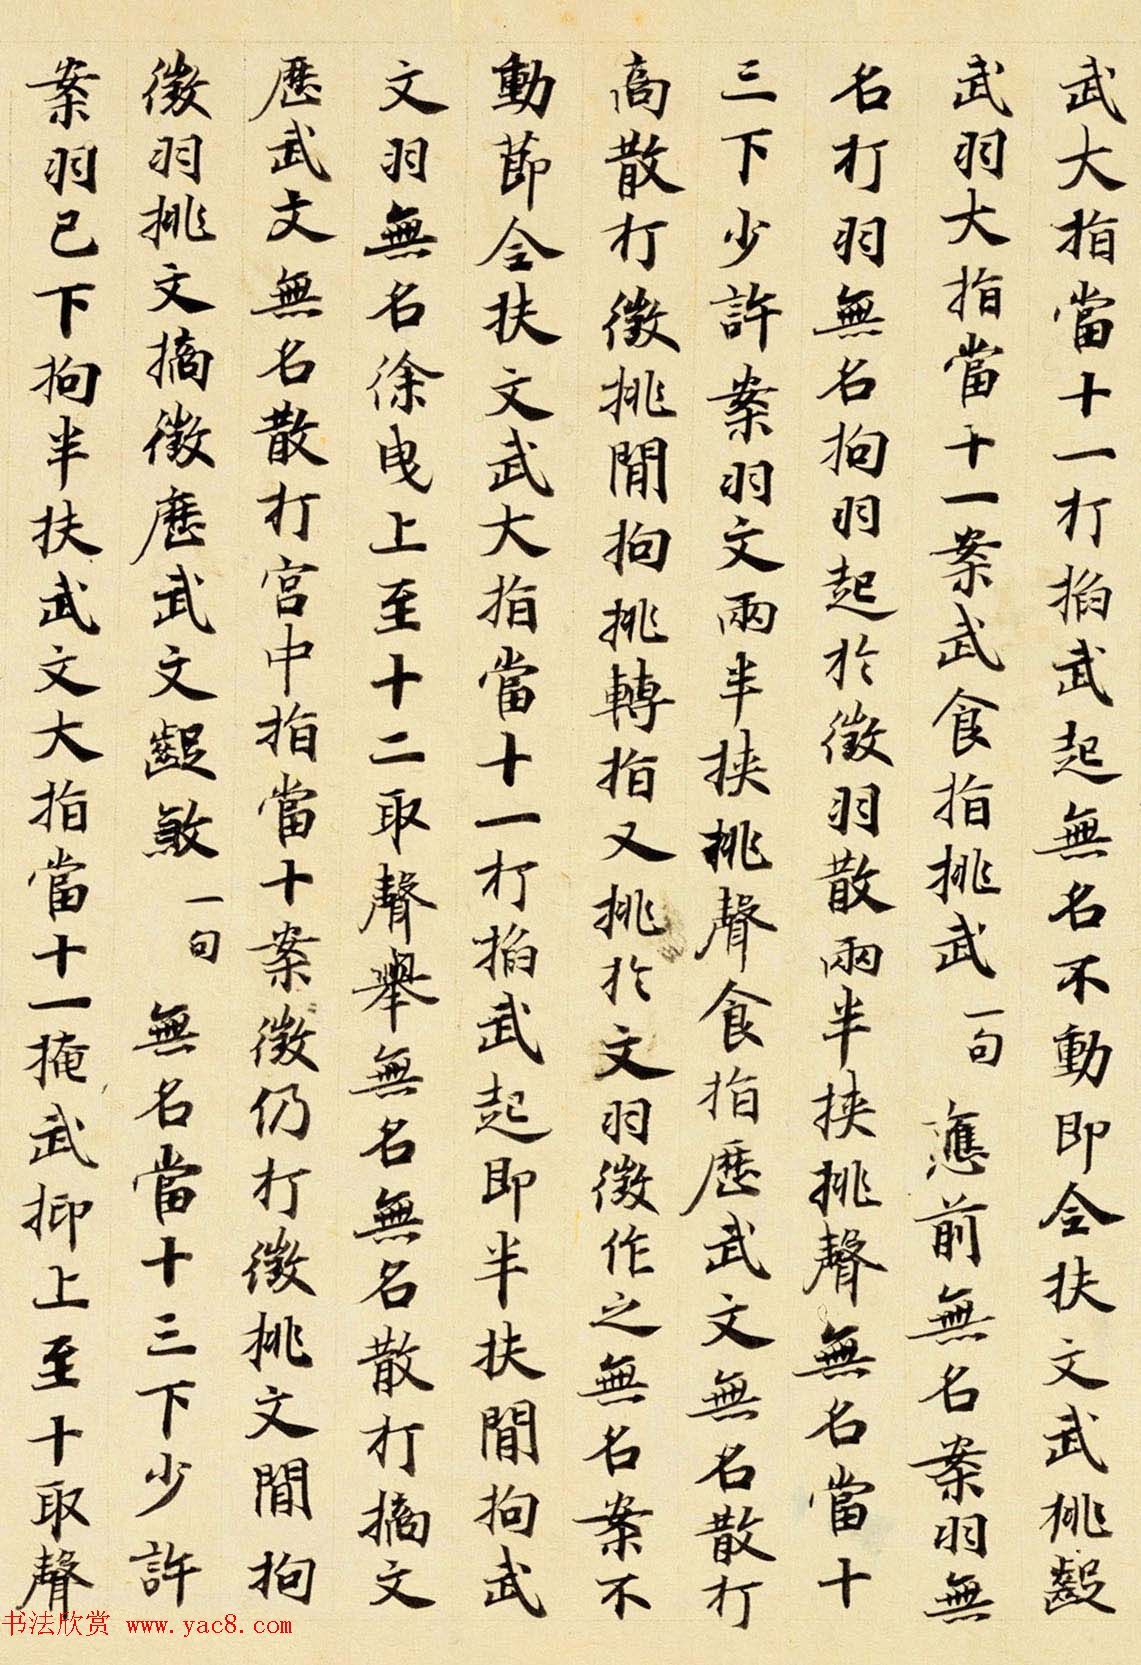 武大指當十一打掐武起無名不動即全扶文武挑齪
武羽大指當十一案武食指挑武一句應前無名案羽無
名打羽無名拘羽起於徵羽散兩半挾挑聲無名當十
三下少許案羽文兩半挾挑聲食指歷武文無名散打
高散打徵挑間拘挑轉指又挑於文羽徵作之無名案不
動莭全扶文武大指當十一打掐武起即半扶間拘武
文羽無名徐曳上至十二取聲舉無名無名散打摘文
歷武文無名散打宮中指當十案徵仍打徵挑文間拘
徵羽挑文摘徵歷武文齪煞一句無名當十三下少許
案羽已下拘半扶武文大指當十一掩武抑上至十取聲
书法欣赏 www.yac8.com